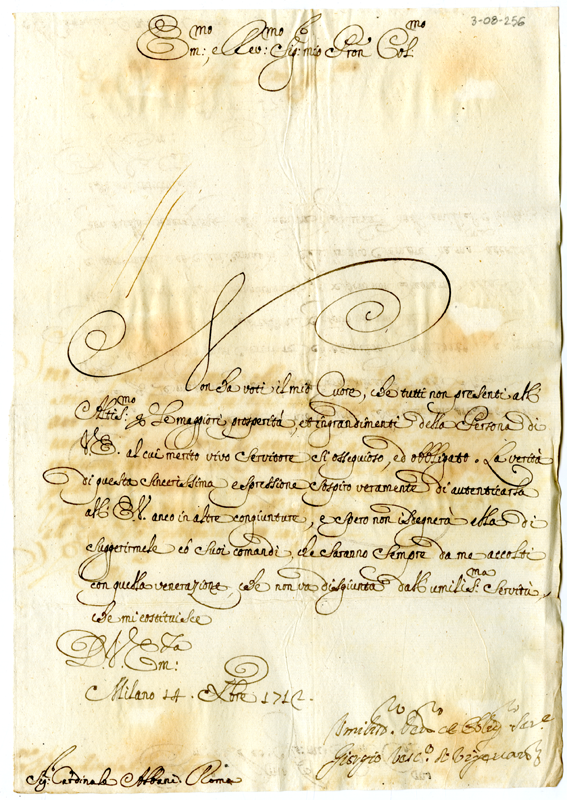 3-08-256
Em:mo, e Rev:mo Sig:r mio Pron Col:mo
Non ha voti il mio Cuore, che tutti non presenti all'
Altis:mo p le maggiori prosperità, et ingrandimenti della Persona di
V.E. al cui merito vivo servitore sì ossequioso, ed obbligato. La verità
di questa sincerissima espressione sospiro veramente di autenticarla
all' E.V. anco in altre congiunture, e spero non isdegnerà ella di
suggerirmele co' suoi comandi, che saranno sempre da me accolti
con quella venerazione, che non va disgiunta dall' umilis:ma servitù,
che mi costituisce
D.V. Em:za
Milano 14. Xbre 1712.
Sig: Cardinale Albani Roma